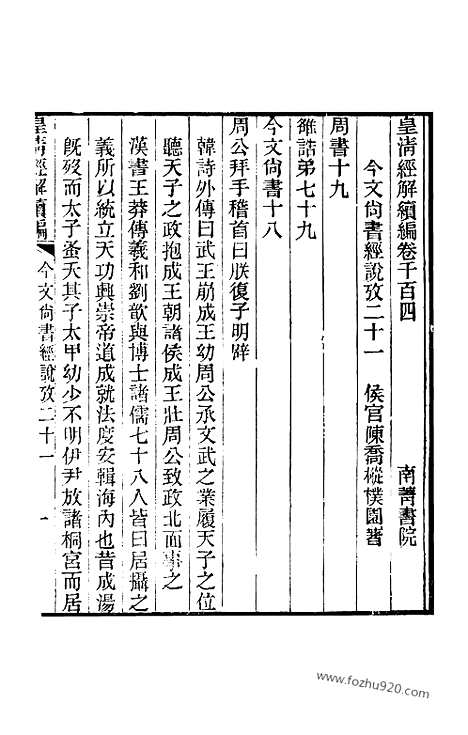 皇清經解續編卷千百四　南菁書院
今文尙書經說攷二十一　侯官陳喬樅樸園著
周書十九
雒誥弟七十九
今文尙書十八
周公拜手稽首曰朕復子明辟
韓詩外傳曰武王崩成王幼周公承文武之業履天子之位
聽天子之政抱成王朝諸侯成王壯周公致政北面事之
漢書王莽傳羲和劉歆與博士諸儒七十八人皆曰居攝之
義所以統立天功興崇帝道成就法度安輯海內也昔成湯
旣歿而太子蚤夭其子太甲幼少不明伊尹放諸桐宮而居
皇清經解續編　今文尙書經說攷二十一　一
www.fozhu920.com